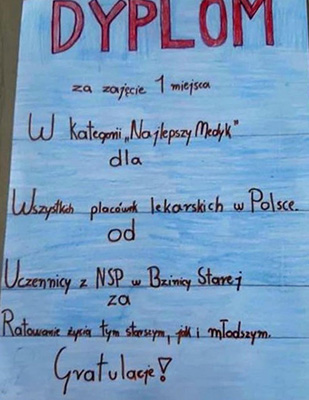 DYPLOM
za zajęcie 1 miejsca
W kategorii „Najlepszy Medyk"
dla
Wszystkich placówek lekarskich w Polsce.
od
Uczennicy z NSP w Bzinicy Starej
za
Ratowanie życia tym starszym, jak i młodszym.
Gratulacje!